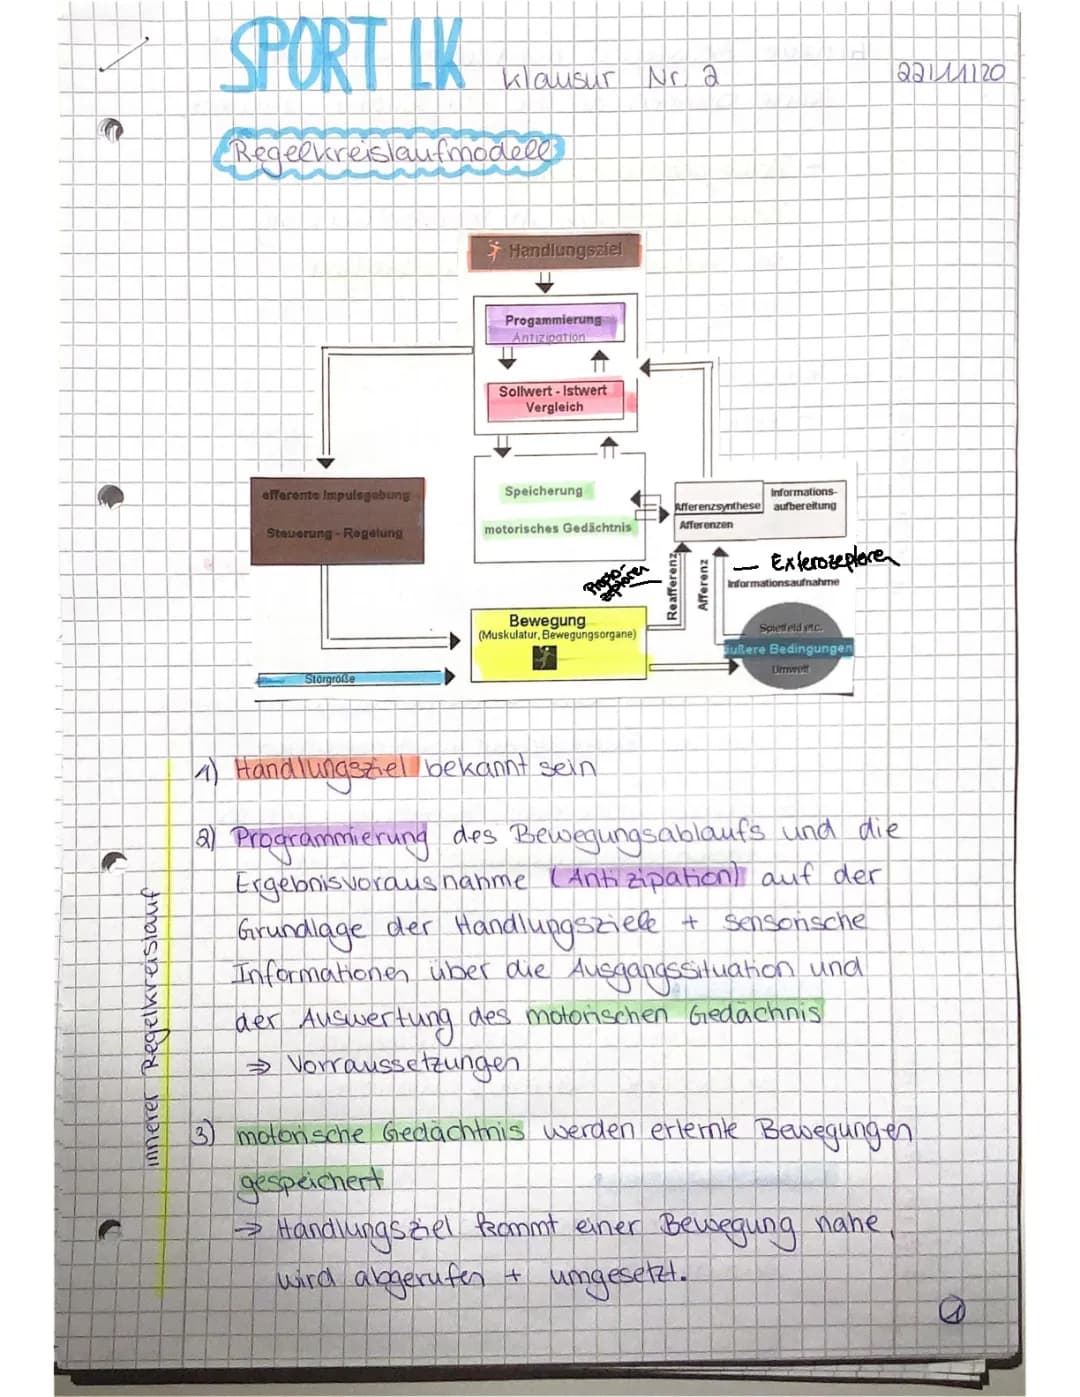 SPORT LK Klausur Nr. 2 22/11/20
Regelkreislaufmodell
Handlungsziel
Progammierung
Antizipation
Sollwert - Istwert
Vergleich
efferente Impulsgebung
Steuerung - Regelung
Speicherung
motorisches Gedächtnis
Afferenzsynthese
Afferenzen
Informations-
aufbereitung
Reafferenz
Afferenz
Exterozeptoren
Informationsaufnahme
Bewegung
(Muskulatur, Bewegungsorgane)
Spielfeld etc.
äußere Bedingungen
Umwelt
Störgröße
innerer Regelkreislauf
1) Handlungsziel bekannt sein
2) Programmierung des Bewegungsablaufs und die
Ergebnisvorausnahme (Antizipation) auf der
Grundlage der Handlungsziele + sensorische
Informationen über die Ausgangssituation und
der Auswertung des motorischen Gedächnis
⇒ Vorraussetzungen
3) motorische Gedächtnis werden erlernte Bewegungen
gespeichert
→ Handlungsziel kommt einer Bewegung nahe,
wird abgerufen + umgesetzt.
1